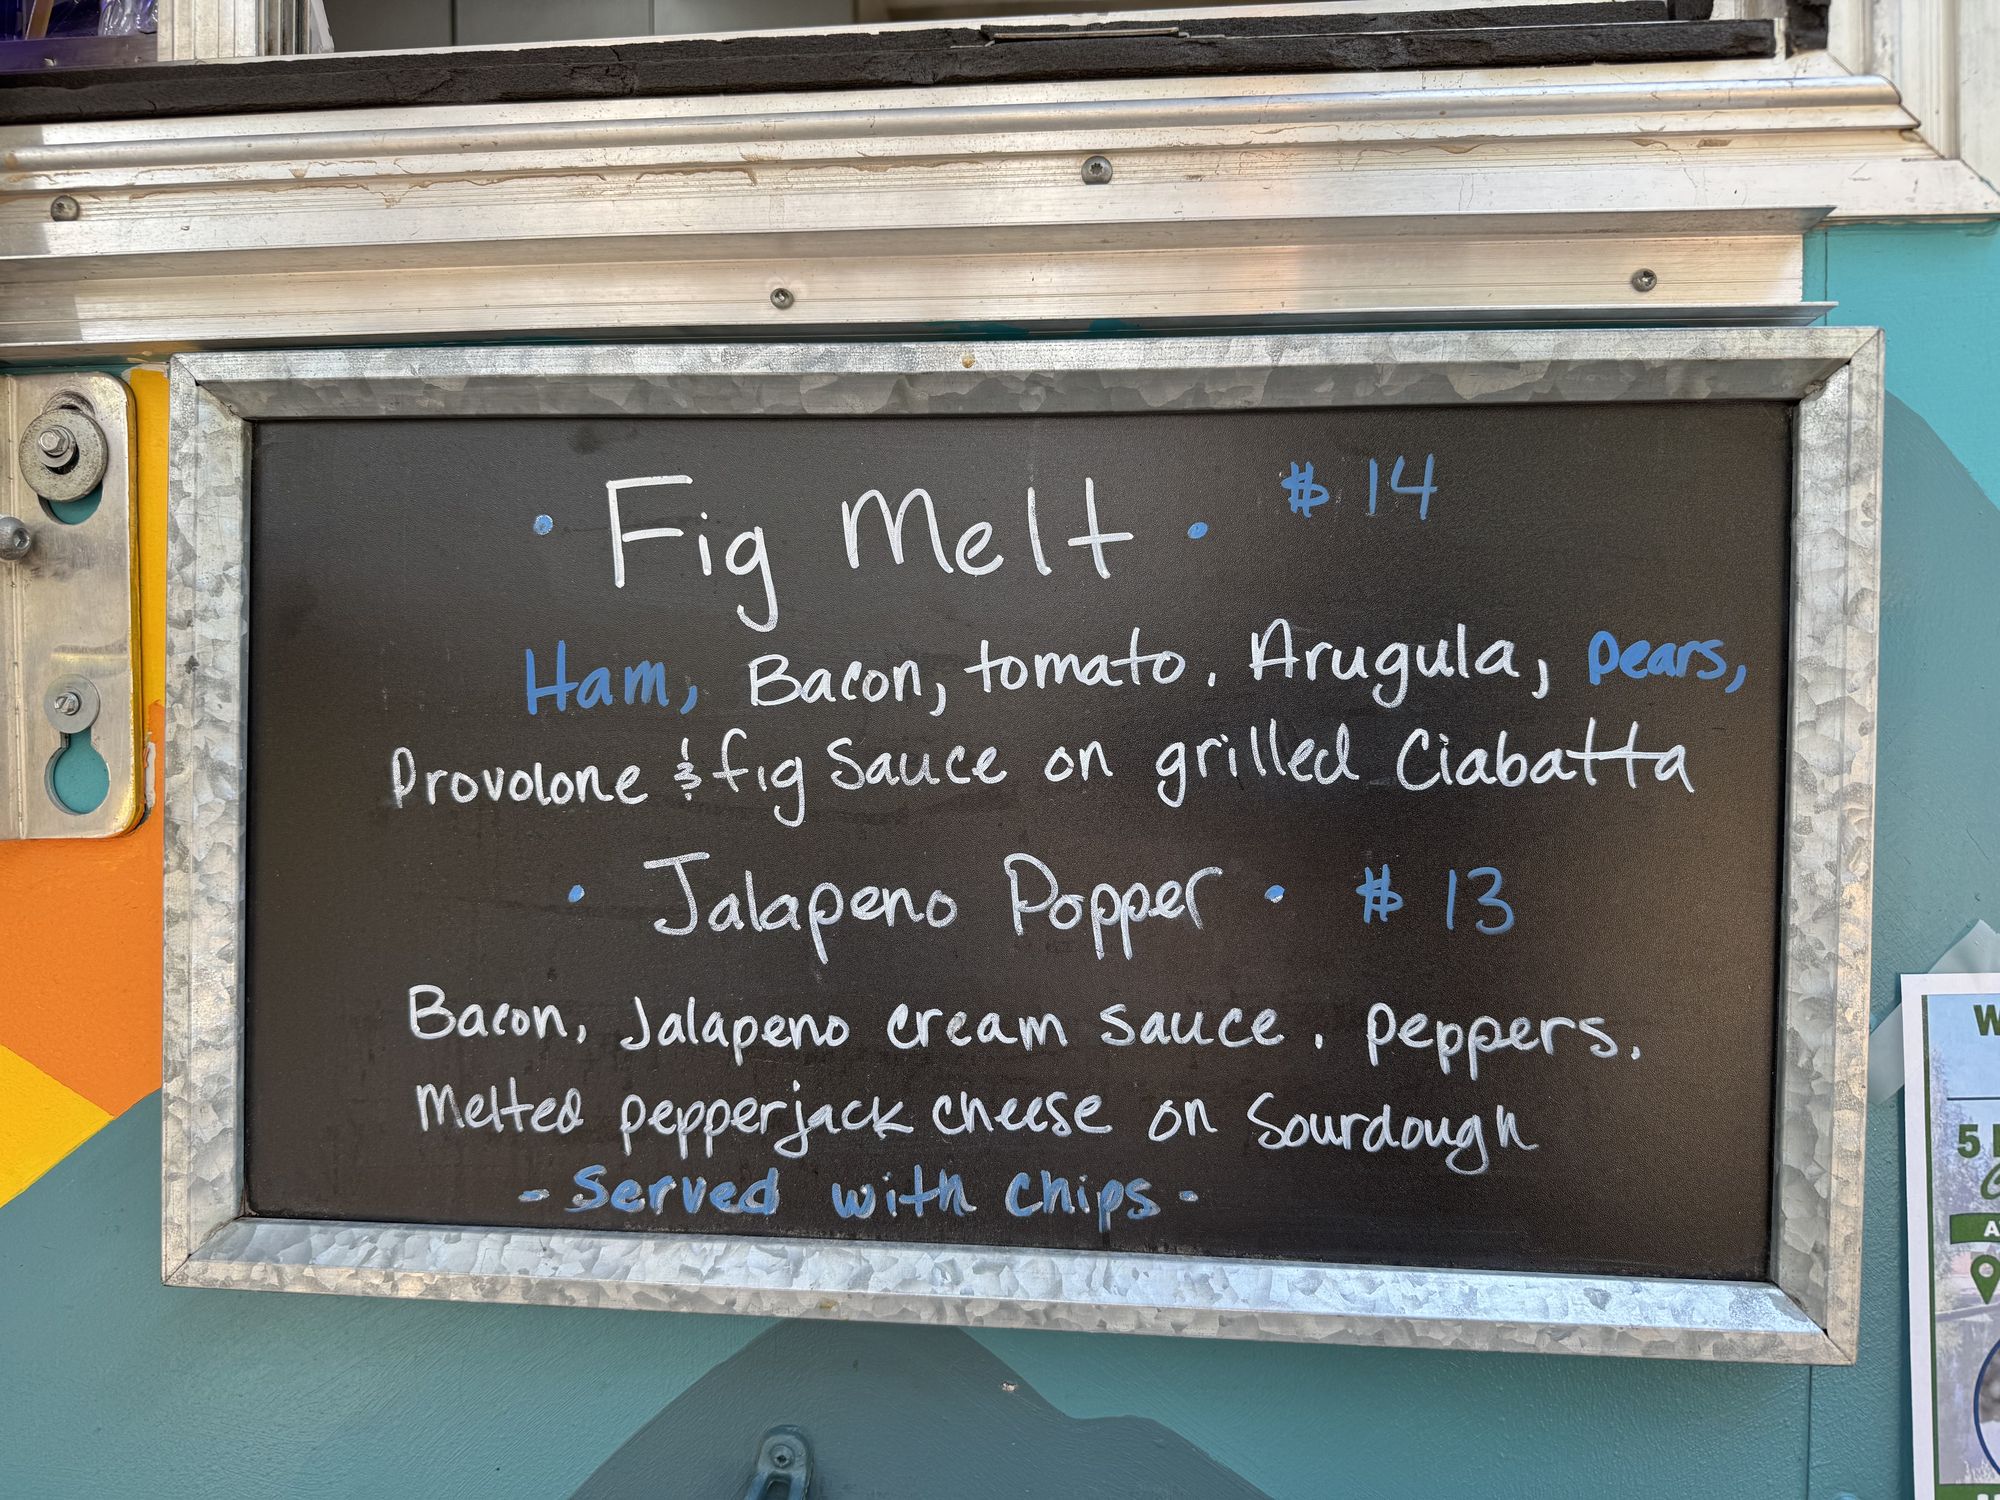 • Fig Melt • $14
Ham, Bacon, tomato, Arugula, pears,
Provolone & fig Sauce on grilled Ciabatta
• Jalapeno Popper • $13
Bacon, Jalapeno cream sauce, peppers,
Melted pepperjack cheese on Sourdough
- Served with chips -
W
5